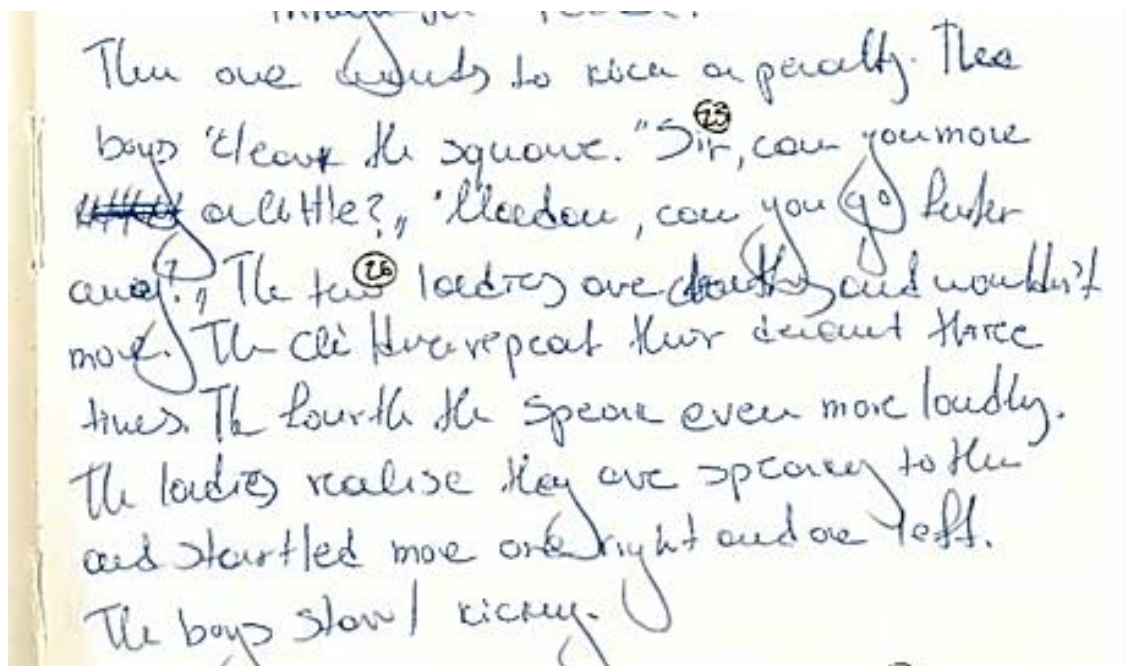 Then one wants to kick a penalty. The
boys "cleave the square. "Sir, 25 can you move
a little?„ "Madam, can you go further
away?„ The two 26 ladies are and wouldn't
move. The children repeat their demand three
times. The fourth the speak even more loudly.
The ladies realise they are speaking to them
and startled move one right and one left.
The boys start kicking.